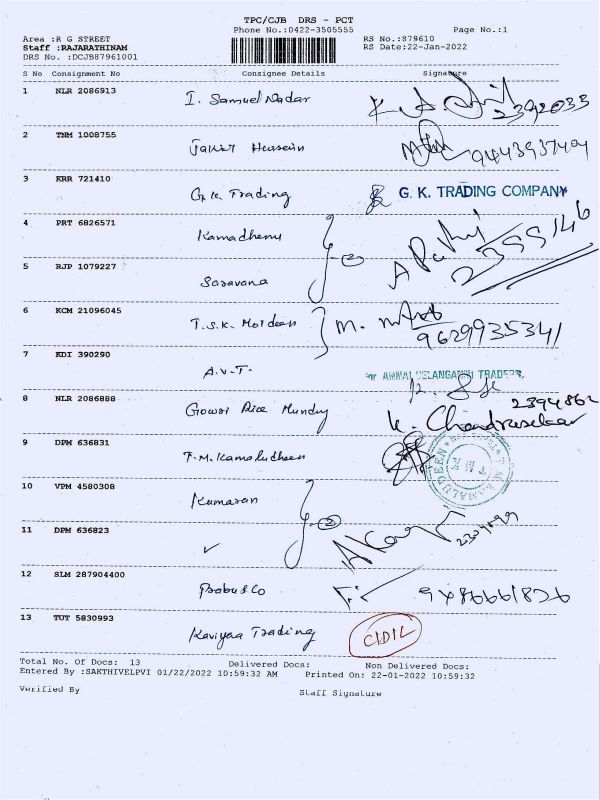 TPC/CJB DRS - PCT
Phone No.:0422-3505555 Page No.:1
Area :R G STREET RS No.:879610
Staff :RAJARATHINAM RS Date:22-Jan-2022
DRS No. :DCJB87961001
S No Consignment No Consignee Details Signature
1 NLR 2086913 I. Samuel Nadar 2392033
2 TNM 1008755 Jakir Hussain 9443937404
3 KRR 721410 G.K. Trading G. K. TRADING COMPANY
4 PRT 6826571 Kamadhenu 2399146
5 RJP 1079227 Saravana
6 KCM 21096045 T.S.K. Moideen M. 9629935341
7 KDI 390290 A.V.T. TRADERS,
8 NLR 2086888 Gowri Rice Mundy 2394862
K. Chandrasekar
9 DPM 636831 T.M. Kamaludheen
10 VPM 4580308 Kumaran
11 DPM 636823 ✓
12 SLM 287904400 Prabu & Co 9486661826
13 TUT 5830993 Kaviyaa Trading
Total No. Of Docs: 13 Delivered Docs: Non Delivered Docs:
Entered By :SAKTHIVELPVI 01/22/2022 10:59:32 AM Printed On: 22-01-2022 10:59:32
Verified By Staff Signature